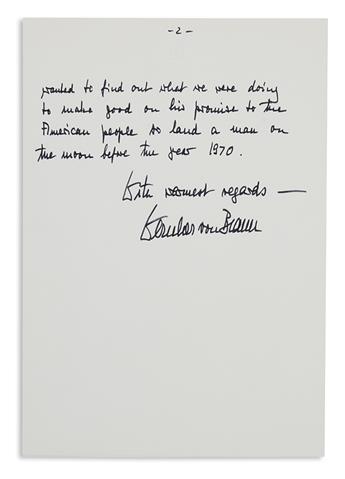 - 2 -
wanted to find out what we were doing
to make good on his promise to the
American people to land a man on
the moon before the year 1970.
With warmest regards —
Wernher von Braun